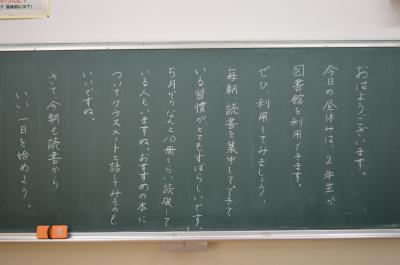 おはようございます。
今日の昼休みは、2年生が
図書館を利用できます。
ぜひ、利用してみましょう。
毎朝、読書を集中してできて
いる習慣がとてもすばらしいです。
5月からなんと10冊くらい読破して
いる人もいますね。おすすめの本に
ついてクラスメートと話してみるのも
いいですね。
さて今朝も読書から
いい一日を始めよう。